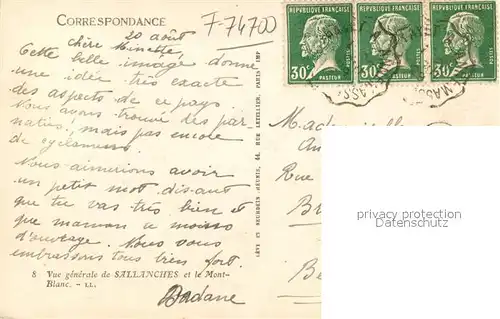 CORRESPONDANCE
F-74700
20 août
chère Minette,
Cette belle image donne
une idée très exacte
des aspects de ce pays
Nous avons trouvé des par-
naties, mais pas encore
de cyclamens.
Nous aimerions avoir
un petit mot disant
que tu vas très bien et
que maman a moins
d'ouvrage. Nous vous
embrassons tous bien fort.
Dadane
8 Vue générale de SALLANCHES et le Mont-
Blanc. - LL.
LÉVY ET NEURDEIN RÉUNIS, 44, RUE LETELLIER, PARIS IMP
RÉPUBLIQUE FRANÇAISE
30c
POSTES
PASTEUR
RÉPUBLIQUE FRANÇAISE
30c
POSTES
PASTEUR
RÉPUBLIQUE FRANÇAISE
30c
POSTES
PASTEUR
Mademoiselle
Rue
privacy protection
Datenschutz